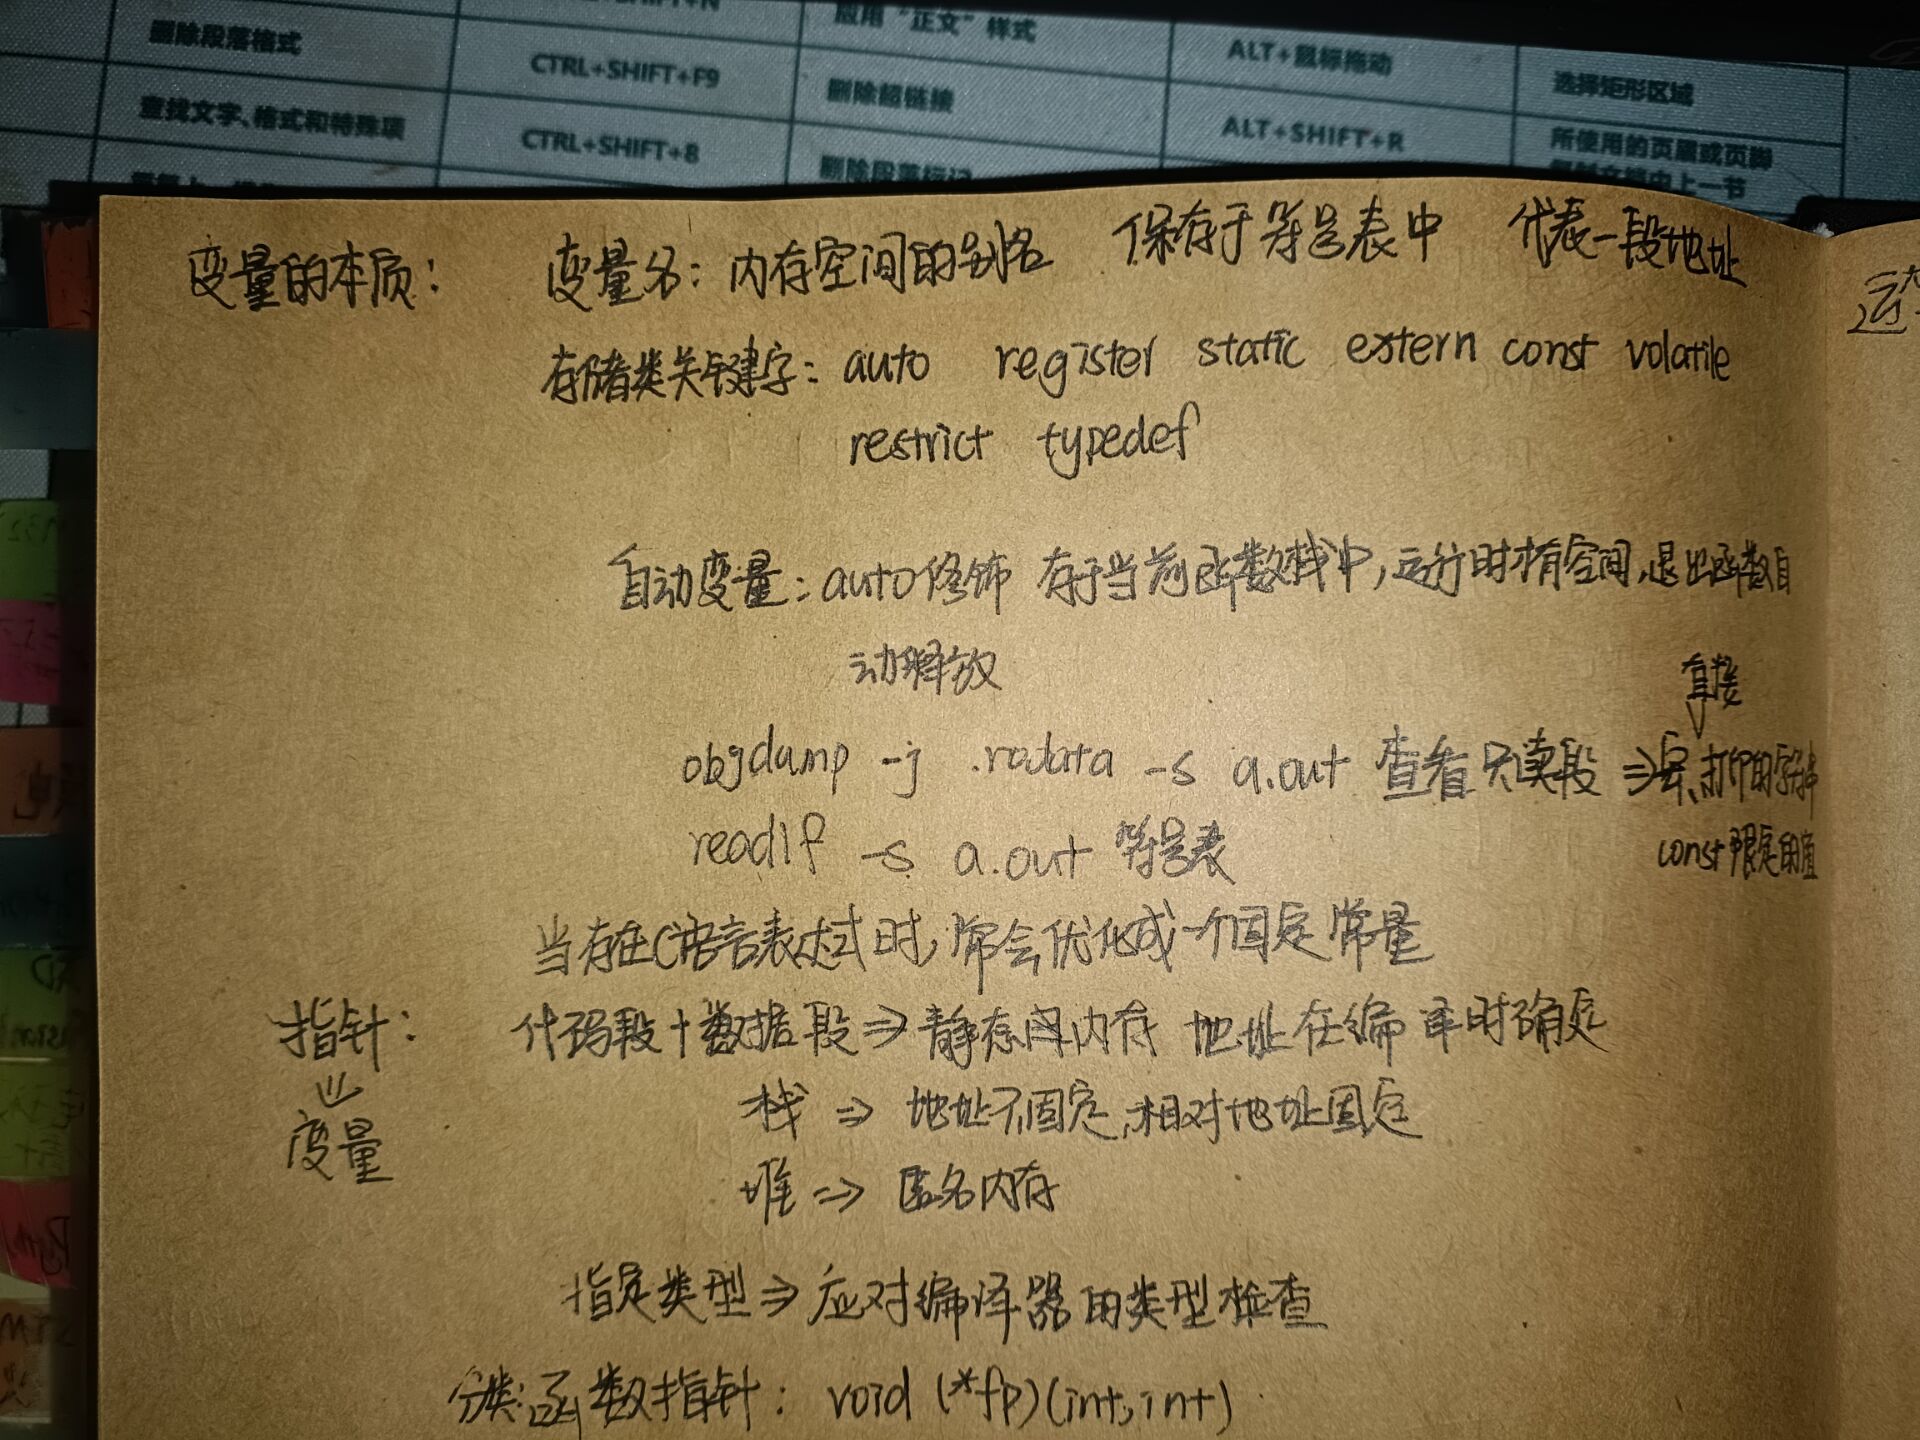 CTRL+SHIFT+N
应用“正文”样式
删除段落格式
CTRL+SHIFT+F9
删除超链接
ALT+鼠标拖动
选择矩形区域
查找文字、格式和特殊项
CTRL+SHIFT+8
删除段落标记
ALT+SHIFT+R
所使用的页眉或页脚
上一节
变量的本质: 变量名: 内存空间的别名 保存于符号表中 代表一段地址
存储类关键字: auto register static extern const volatile
restrict typedef
自动变量: auto修饰 存于当前函数栈中,运行时才有空间,退出函数自
动释放
直接
objdump -j .rodata -s a.out 查看只读段 ⇒ 打印的字符串
readlf -s a.out 符号表
const限定的值
当存在C语言表达式时,常会优化成一个固定常量
指针: 代码段+数据段⇒静态内存 地址在编译时确定
⇓
变量
栈 ⇒ 地址不固定,相对地址固定
堆 ⇒ 匿名内存
指定类型⇒应对编译器的类型检查
分类:函数指针: void (*fp)(int,int)